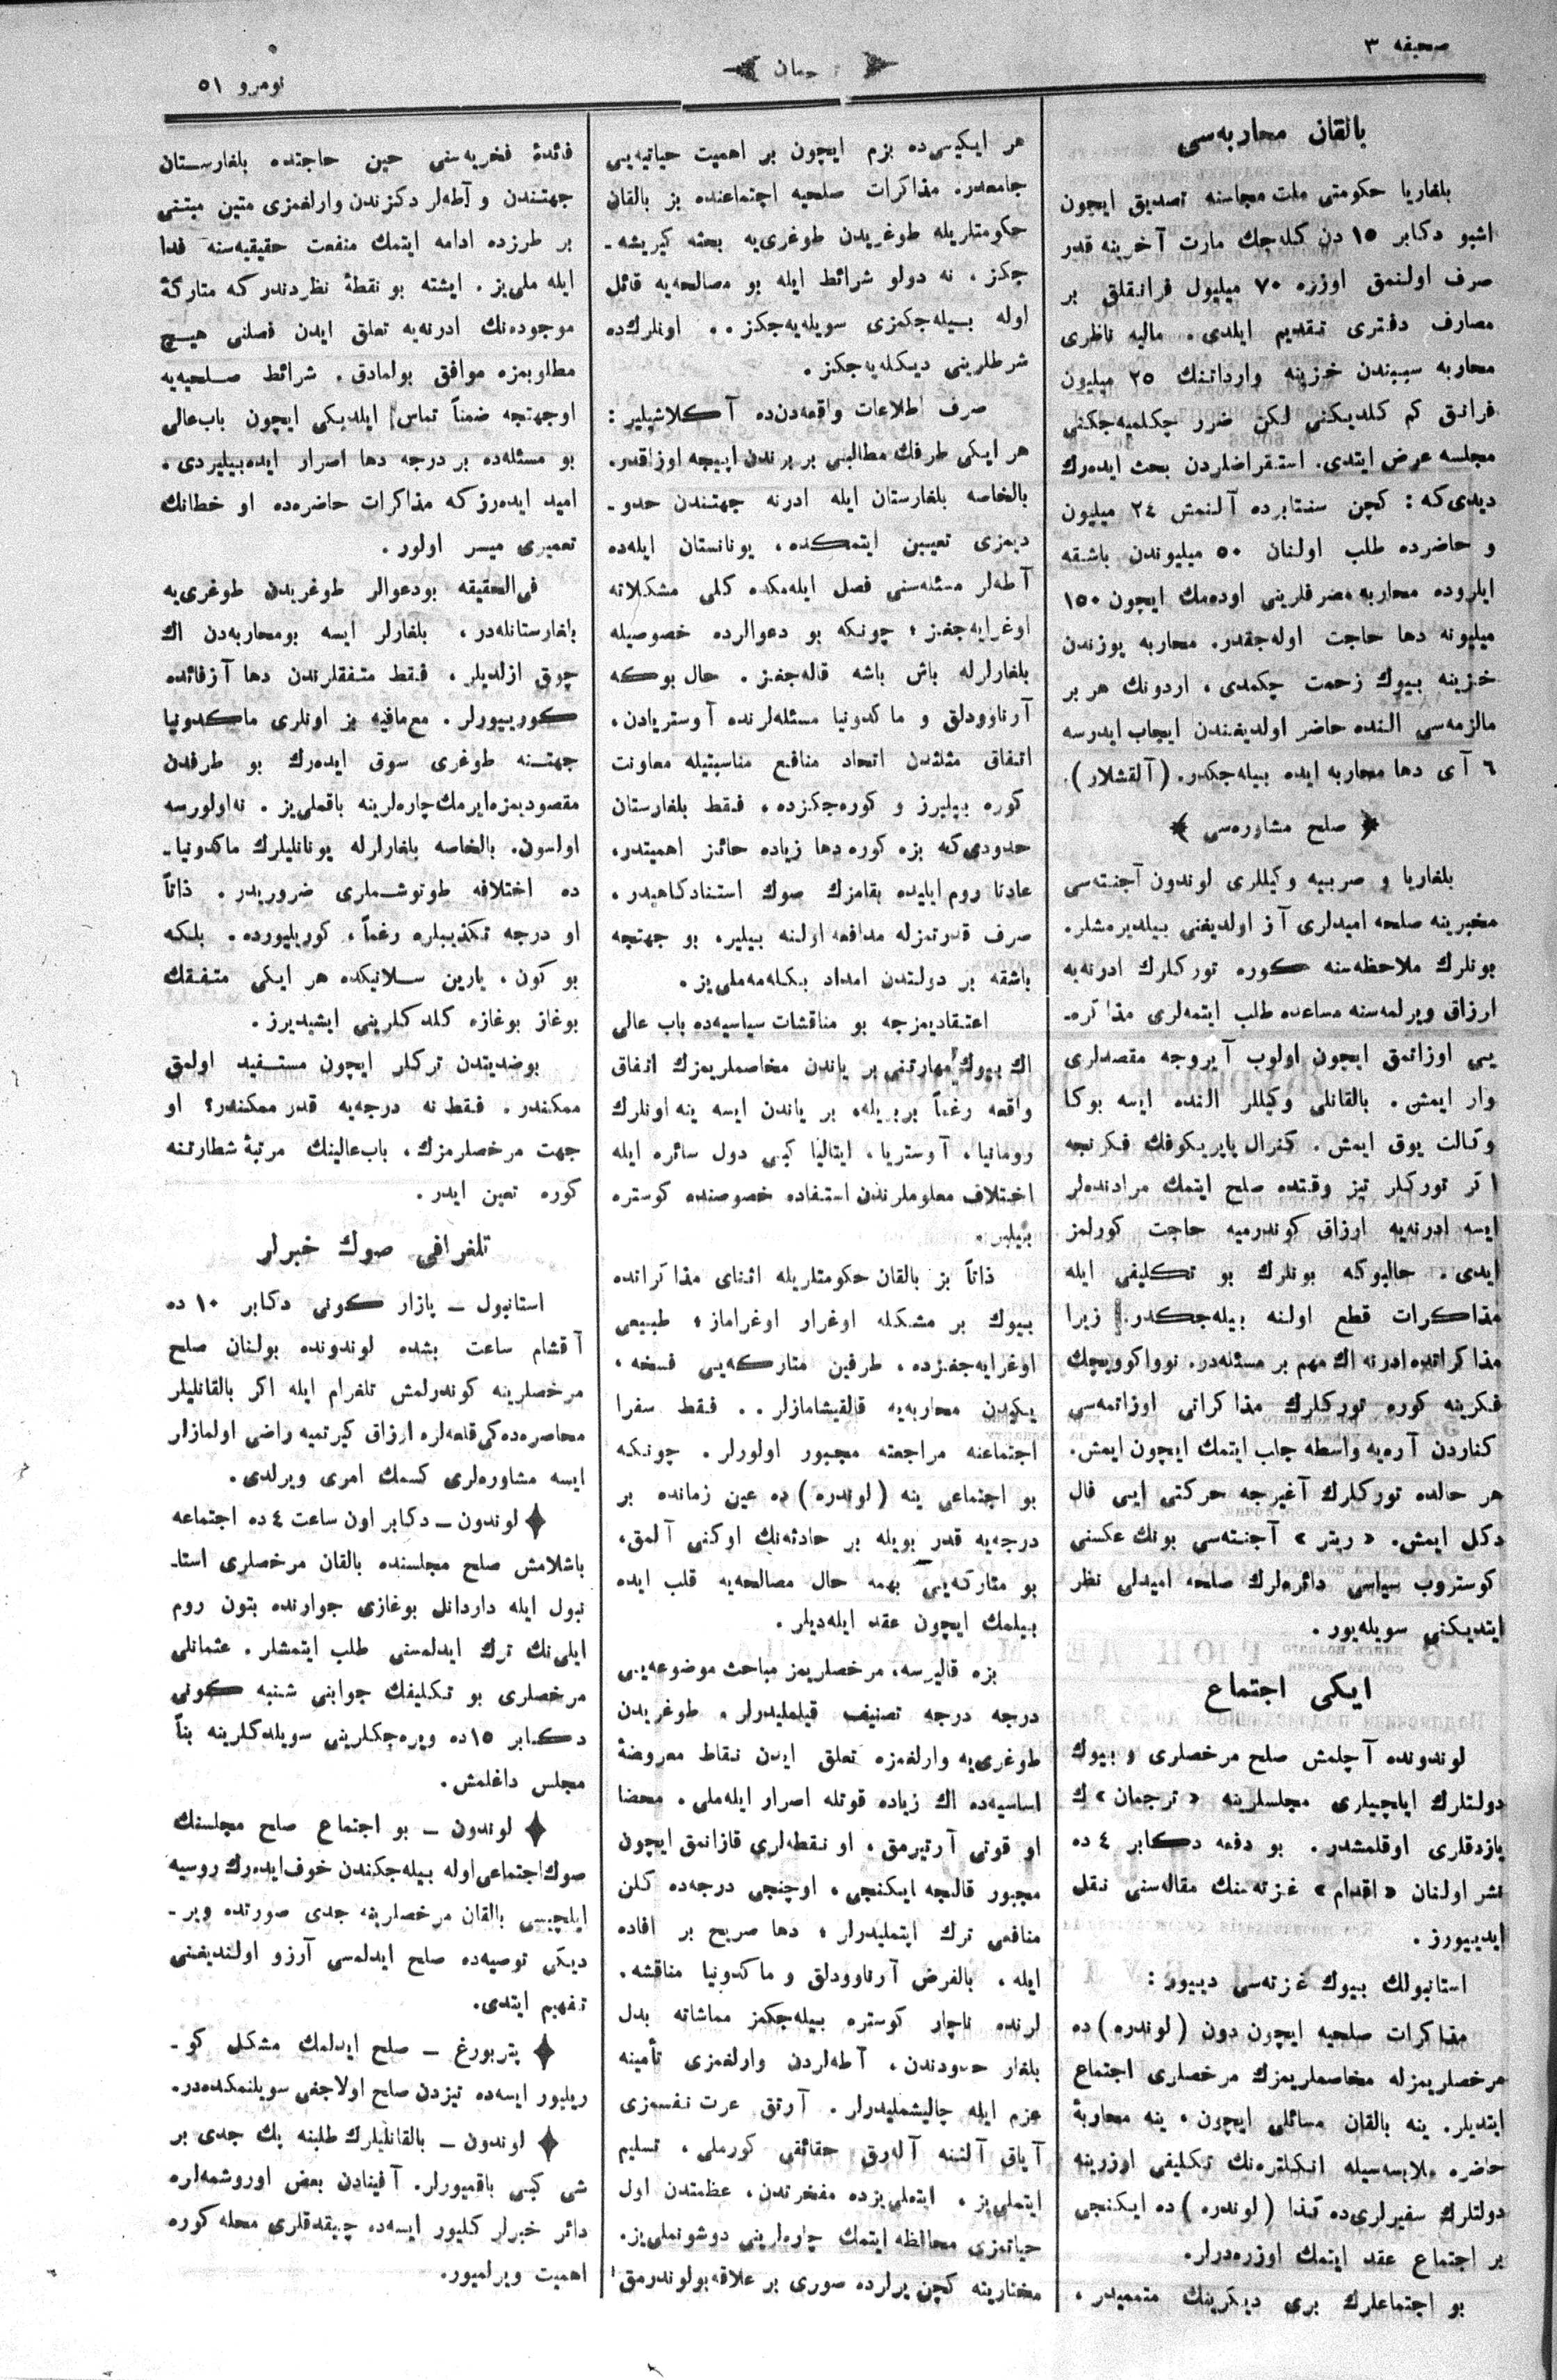 صحیفه ۳
ترجمان
نومرو ٥١
بالقان محاربه‌سی
بلغاریا حکومتی ملت مجلسنه تصدیق ایچون
اشبو دکابر ١٥ دن کله‌جك مارت آخرینه قدر
صرف اولنمق اوزره ٧٠ میلیون فرانقلق بر
مصارف دفتری تقدیم ایلدی. مالیه ناظری
محاربه سببندن خزینه وارداتنك ٢٥ میلیون
فرانق کم کلدیکنی لکن ضرر چکلمیه‌جکنی
مجلسه عرض ایتدی. استقراضلردن بحث ایده‌رك
دیدی‌که : کچن سنتابرده آلنمش ٢٤ میلیون
و حاضرده طلب اولنان ٥٠ میلیوندن باشقه
ایلروده محاربه مصرفلرینی اوده‌مك ایچون ١٥٠
میلیونه دها حاجت اوله‌جقدر. محاربه یوزندن
خزینه بیوك زحمت چکمدی، اردونك هر بر
مالزمه‌سی النده حاضر اولدیغندن ایجاب ایدرسه
٦ آی دها محاربه ایده بیله‌جکدر. (آلقشلار).
صلح مشاوره‌سی
بلغاریا و صربیه وکیللری لوندون آجنته‌سی
مخبرینه صلحه امیدلری آز اولدیغنی بیلدیرمشلر.
بونلرك ملاحظه‌سنه کوره تورکلرك ادرنه‌یه
ارزاق ویرلمه‌سنه مساعده طلب ایتمه‌لری مذاکره‌ـ
یی اوزاتمق ایچون اولوب آیروجه مقصدلری
وار ایمش. بالقانلی وکیللر النده ایسه بوکا
وکالت یوق ایمش. کنرال پاپریکوفك فکرنجه
اکر تورکلر تیز وقتده صلح ایتمك مرادنده‌لر
ایسه ادرنه‌یه ارزاق کوندرمیه حاجت کورلمز
ایدی. حالبوکه بونلرك بو تکلیفی ایله
مذاکرات قطع اولنه بیله‌جکدر. زیرا
مذاکراتده ادرنه اك مهم بر مسئله‌در. نوواکوویچك
فکرینه کوره تورکلرك مذاکراتی اوزاتمه‌سی
کناردن آره‌یه واسطه جلب ایتمك ایچون ایمش.
هر حالده تورکلرك آغیرجه حرکتی ایی فال
دکل ایمش. « ریتر » آجنته‌سی بونك عکسنی
کوستروب سیاسی دائره‌لرك صلحه امیدلی نظر
ایتدیکنی سویله‌یور.
ایکی اجتماع
لوندونده آچلمش صلح مرخصلری و بیوك
دولتلرك ایلچیلری مجلسلرینه « ترجمان » ك
یازدقلری اوقلمشدر. بو دفعه دکابر ٤ ده
نشر اولنان « اقدام » غزته‌سنك مقاله‌سنی نقل
ایدییورز.
استانبولك بیوك غزته‌سی دییور :
مذاکرات صلحیه ایچون دون (لوندره) ده
مرخصلریمزله مخاصملریمزك مرخصلری اجتماع
ایتدیلر. ینه بالقان مسائلی ایچون، ینه محاربۀ
حاضره ملابسه‌سیله انکلتره‌نك تکلیفی اوزرینه
دولتلرك سفیرلری‌ده کذا (لوندره) ده ایکنجی
بر اجتماع عقد ایتمك اوزره‌درلر.
بو اجتماعلرك بری دیکرینك متممیدر،
هر ایکیسی‌ده بزم ایچون بر اهمیت حیاتیه‌یی
جامعدر. مذاکرات صلحیه اجتماعنده بز بالقان
حکومتلریله طوغریدن طوغری‌یه بحثه کیریشه‌ـ
جکز. نه دولو شرائط ایله بو مصالحه‌یه قائل
اوله بیله‌جکمزی سویله‌یه‌جکز.. اونلرك‌ده
شرطلرینی دیکله‌یه‌جکز.
صرف اطلاعات واقعه‌دن‌ده آکلاشیلیر :
هر ایکی طرفك مطالبی بربرندن اپیجه اوزاقدر.
بالخاصه بلغارستان ایله ادرنه جهتندن حدو ـ
دیمزی تعیین ایتمکده، یونانستان ایله‌ده
آطه‌لر مسئله‌سنی فصل ایله‌مکده کلی مشکلاته
اوغرایه‌جغز؛ چونکه بو دعوالرده خصوصیله
بلغارلرله باش باشه قاله‌جغز. حال بوکه
آرناوودلق و ماکدونیا مسئله‌لرنده آوستریادن،
اتفاق مثلثدن اتحاد منافع مناسبتیله معاونت
کوره بیلیرز و کوره‌جکزده. فقط بلغارستان
حدودی‌که بزه کوره دها زیاده حائز اهمیتدر،
عادتا روم ایلیده بقامزك صوك استنادکاهیدر،
صرف قدرتمزله مدافعه اولنه بیلیر، بو جهتجه
باشقه بر دولتدن امداد بکله‌مه‌ملی‌یز.
اعتقادیمزجه بو مناقشات سیاسیه‌ده باب عالی
اك بیوك مهارتنی بر یاندن مخاصملریمزك اتفاق
واقعه رغماً بربریله، بر یاندن ایسه ینه اونلرك
رومانیا، آوستریا، ایتالیا کبی دول سائره ایله
اختلاف معلوملرندن استفاده خصوصنده کوستره
بیلیر.
ذاتاً بز بالقان حکومتلریله اثنای مذاکراتده
بیوك بر مشکله اوغرار اوغراماز؛ طبیعی
اوغرایه‌جغزده، طرفین متارکه‌یی فسخه،
یکیدن محاربه‌یه قالقیشامازلر.. فقط سفرا
اجتماعنه مراجعته مجبور اولورلر. چونکه
بو اجتماعی ینه (لوندره) ده عین زمانده بر
درجه‌یه قدر بویله بر حادثه‌نك اوکنی آلمق،
بو متارکه‌یی بهمه حال مصالحه‌یه قلب ایده
بیلمك ایچون عقد ایله‌دیلر.
بزه قالیرسه، مرخصلریمز مباحث موضوعه‌یی
درجه درجه تصنیف قیلملیدرلر. طوغریدن
طوغری‌یه وارلغمزه تعلق ایدن نقاط معروضۀ
اساسیه‌ده اك زیاده قوتله اصرار ایله‌ملی. محضا
او قوتی آرتیرمق، او نقطه‌لری قازانمق ایچون
مجبور قالنجه ایکنجی، اوچنجی درجه‌ده کلن
منافعی ترك ایتملیدرلر؛ دها صریح بر افاده
ایله، بالفرض آرناوودلق و ماکدونیا مناقشه‌ـ
لرنده ناچار کوستره بیله‌جکمز مماشاته بدل
بلغار حدودندن، آطه‌لردن وارلغمزی تأمینه
عزم ایله چالیشملیدرلر. آرتق عزت نفسمزی
آیاق آلتنه آله‌رق حقائقی کورملی، تسلیم
ایتملی‌یز. ایتملی‌یزده مفخرتدن، عظمتدن اول
حیاتمزی محافظه ایتمك چاره‌لرینی دوشونملی‌یز.
مختاریته کچن یرلرده صوری بر علاقه بولوندرمق
فائدۀ فخریه‌سنی حین حاجتده بلغارستان
جهتندن و آطه‌لر دکزندن وارلغمزی متین مبتنی
بر طرزده ادامه ایتمك منفعت حقیقیه‌سنه فدا
ایله ملی‌یز. ایشته بو نقطۀ نظردندرکه متارکۀ
موجوده‌نك ادرنه‌یه تعلق ایدن فصلنی هیچ
مطلوبمزه موافق بولمادق. شرائط صلحیه‌یه
اوجهتجه ضمناً تماس ایلدیکی ایچون باب‌عالی
بو مسئله‌ده بر درجه دها اصرار ایده‌بیلیردی.
امید ایده‌رزکه مذاکرات حاضره‌ده او خطانك
تعمیری میسر اولور.
فی‌الحقیقه بودعوالر طوغریدن طوغری‌یه
بلغارستانله‌در، بلغارلر ایسه بومحاربه‌دن اك
چوق ازلدیلر، فقط متفقلرندن دها آزفائده
کورییورلر. مع‌مافیه بز اونلری ماکدونیا
جهتنه طوغری سوق ایده‌رك بو طرفدن
مقصودیمزه‌ایرمك چاره‌لرینه باقملی‌یز. نه‌اولورسه
اولسون. بالخاصه بلغارلرله یونانلیلرك ماکدونیاـ
ده اختلافه طوتوشملری ضروریدر. ذاتاً
او درجه تکذیبلره رغماً، کوریلیورده. بلکه
بو کون، یارین سلانیکده هر ایکی متفقك
بوغاز بوغازه کلدکلرینی ایشیدیرز.
بوضدیتدن ترکلر ایچون مستفید اولمق
ممکندر. فقط نه درجه‌یه قدر ممکندر؟ او
جهت مرخصلرمزك، باب‌عالینك مرتبۀ شطارتنه
کوره تعین ایدر.
تلغرافی صوك خبرلر
استانبول ـ پازار کونی دکابر ١٠ ده
آقشام ساعت بشده لوندونده بولنان صلح
مرخصلرینه کوندرلمش تلغرام ایله اکر بالقانلیلر
محاصره‌ده‌کی قلعه‌لره ارزاق کیرتمیه راضی اولمازلار
ایسه مشاوره‌لری کسمك امری ویرلدی.
لوندون ـ دکابر اون ساعت ٤ ده اجتماعه
باشلامش صلح مجلسنده بالقان مرخصلری استاـ
نبول ایله داردانل بوغازی جوارنده بتون روم
ایلی‌نك ترك ایدلمسنی طلب ایتمشلر. عثمانلی
مرخصلری بو تکلیفك جوابنی شنبه کونی
دکابر ١٥ ده ویره‌جکلرینی سویلدکلرینه بناً
مجلس داغلمش.
لوندون ـ بو اجتماع صلح مجلسنك
صوك‌اجتماعی اوله بیله‌جکندن خوف‌ایده‌رك روسیه
ایلچیسی بالقان مرخصلرینه جدی صورتده ویرـ
دیکی توصیه‌ده صلح ایدلمسی آرزو اولندیغنی
تفهیم ایتدی.
پتربورغ ـ صلح ایدلمك مشکل کوـ
ریلیور ایسه‌ده تیزدن صلح اولاجغی سویلنمکده‌در.
لوندون ـ بالقانلیلرك طلبنه پك جدی بر
شی کبی باقمیورلر. آفینادن بعض اوروشمه‌لره
دائر خبرلر کلیور ایسه‌ده چیقدقلری محله کوره
اهمیت ویرلمیور.